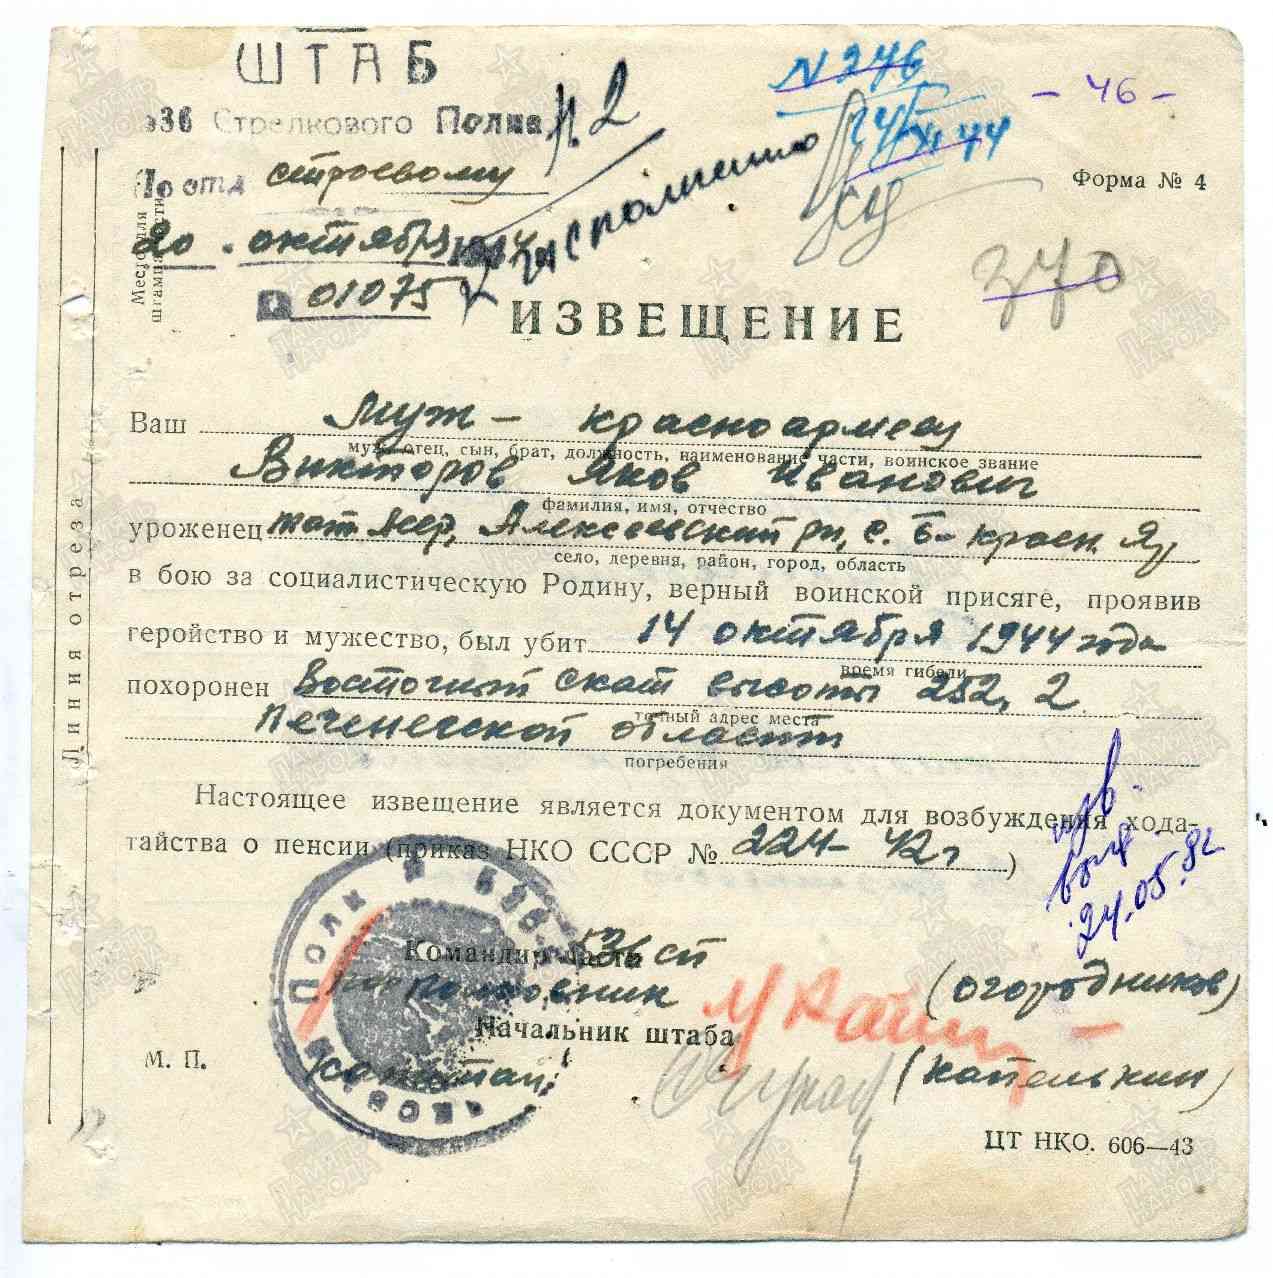 ШТАБ
№ 246
- 46 -
936 Стрелкового Полка
п. 2
По отд строевому
к исполнению
Форма № 4
Место для
штампа части
20. октября 1944
№ 01075
270
ИЗВЕЩЕНИЕ
Ваш муж - красноармеец
муж, отец, сын, брат, должность, наименование части, воинское звание
Викторов Яков Иванович
фамилия, имя, отчество
уроженец тат Асср, Алексеевский рн, с. б- красн. Яр
село, деревня, район, город, область
в бою за социалистическую Родину, верный воинской присяге, проявив
геройство и мужество, был убит 14 октября 1944 года
время гибели
похоронен Восточный скат высоты 252,2
точный адрес места
Печенегской области
погребения
Линия отреза
Настоящее извещение является документом для возбуждения хода-
тайства о пенсии (приказ НКО СССР № 224-42г)
24.05.82
Командир части 936 сп
подполковник (огородников)
Начальник штаба
М. П. капитан (капелькин)
ЦТ НКО. 606—43